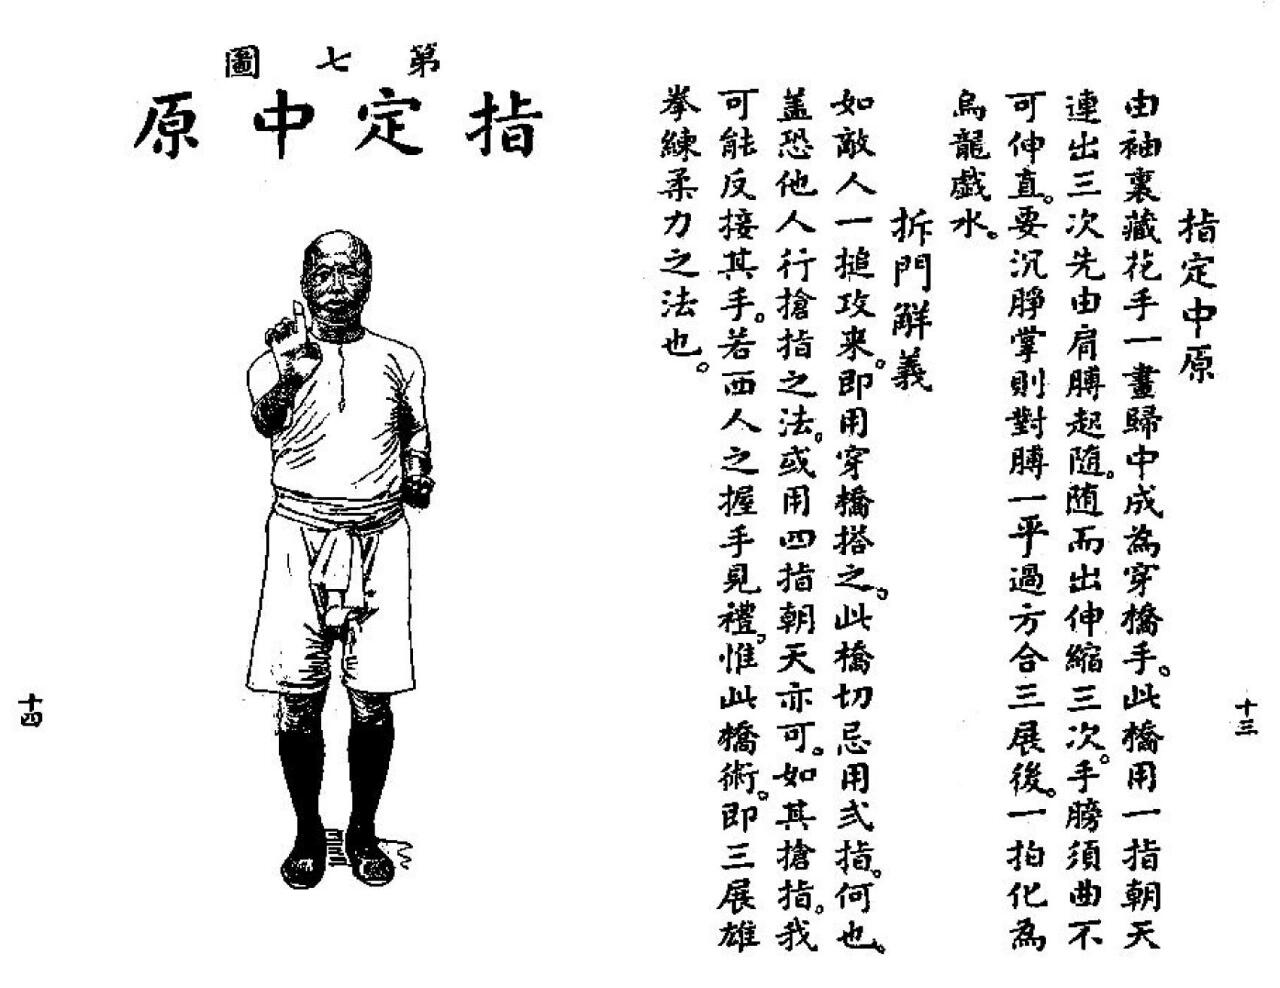 指定中原
由袖裏藏花手一畫歸中成為穿橋手。此橋用一指朝天
連出三次先由肩膊起隨。隨而出伸縮三次。手膀須曲不
可伸直。要沉睜掌則對膊一平過方合三展後。一拍化為
烏龍戲水。
拆門解義
如敵人一搥攻来。即用穿橋搭之。此橋切忌用弍指。何也。
盖恐他人行搶指之法。或用四指朝天亦可。如其搶指。我
可能反接其手。若西人之握手見禮。惟此橋術。即三展雄
拳練柔力之法也。
十三
第七圖
指定中原
十四